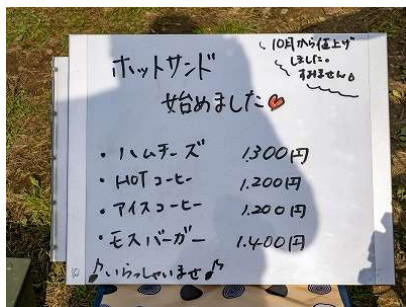 ホットサンド
始めました
10月から値上げ
しました。
すみません。
・ハムチーズ 1.300円
・HOTコーヒー 1.200円
・アイスコーヒー 1.200円
・モスバーガー 1.400円
♪いらっしゃいませ♪